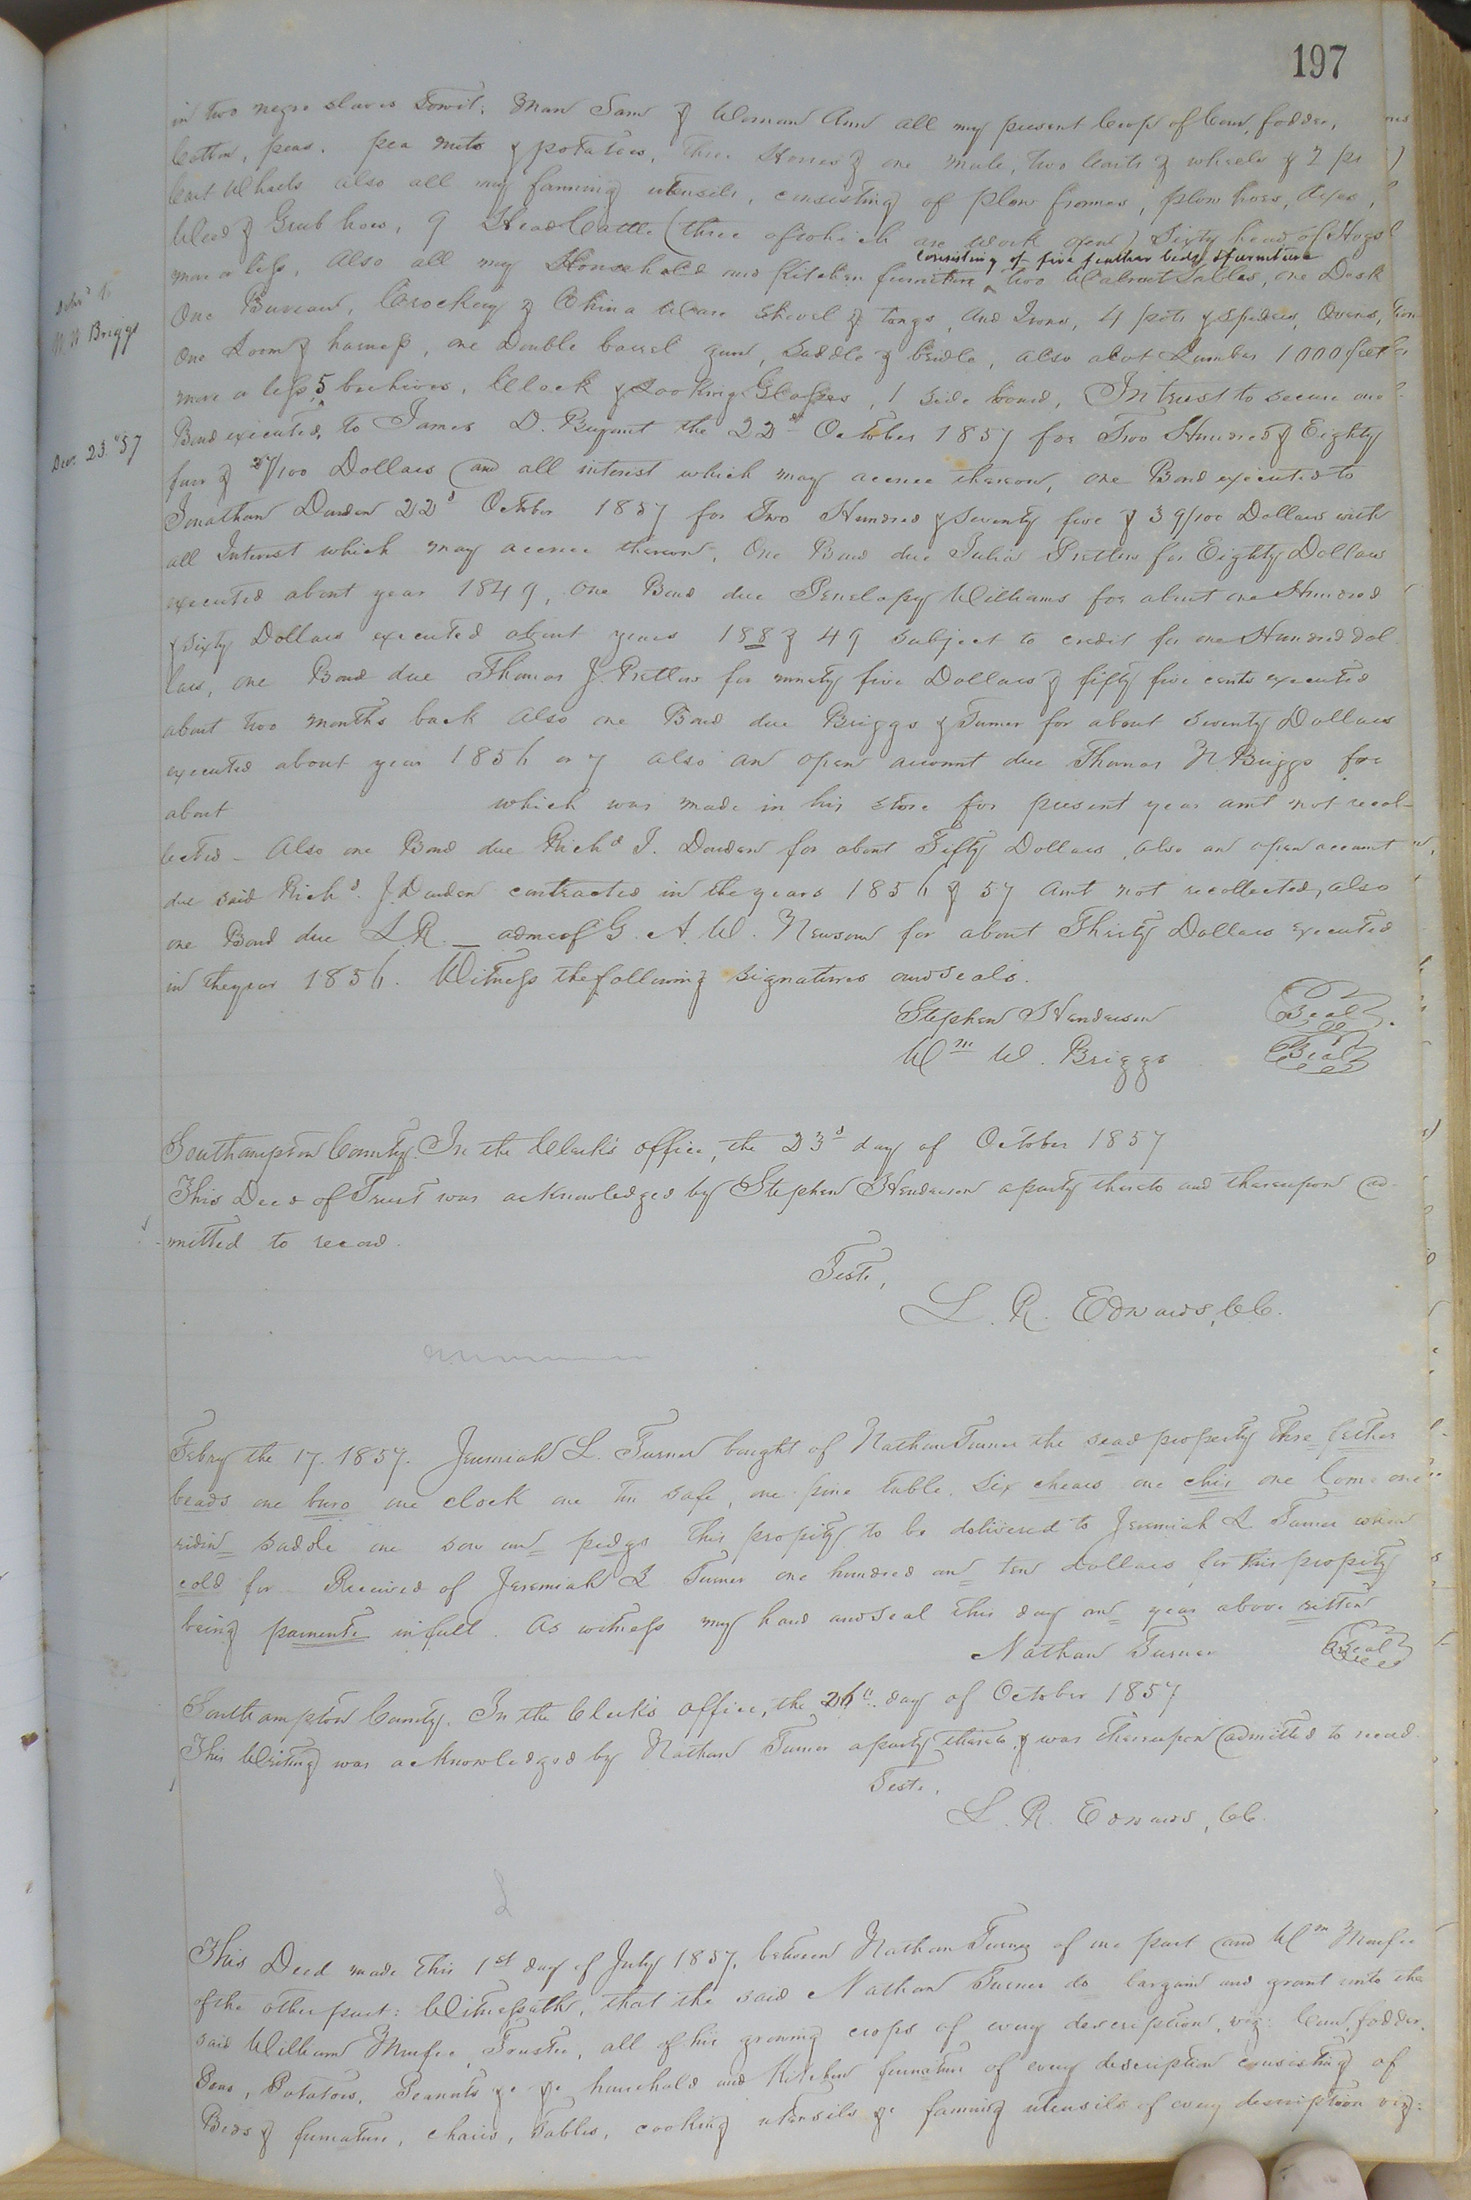 197
in two negro slaves towit, Man Sam & Woman Ann all my present Crop of Corn, fodder,
Cotton, peas, pea nuts & potatoes, three Horses & one mule, two Carts & wheels & 2 pr
Cart Wheels also all my farming utensils, consisting of plow frames, plow hoes, Axes,
Weed & Grub hoes, 9 Head Cattle (three of which are work oxen) Sixty head of Hogs
consisting of five feather beds & furniture
more or less, Also all my Household and Kitchen furniture ^ two Walnut Tables, one Desk
Deliv'd to
W. W Briggs
One Bureau, Crockery & China Ware Shovel & tongs, And Irons, 4 pots & Spiders, Ovens,
One Loom & harness, one double barrel gun, Saddle & bridle, also a lot Lumber 1000 feet
more or less, 5 beehives, Clock & Looking Glasses, 1 Side board, In trust to secure one
Decr. 23. '57
Bond executed, to James D. Bryant the 22d October 1857 for Two Hundred & Eighty
four & 37/100 Dollars and all interest which may accrue thereon, one Bond executed to
Jonathan Darden 22d October 1857 for Two Hundred & Seventy five & 39/100 Dollars with
all Interest which may accrue thereon, One Bond due Julia Pretlow for Eighty Dollars
executed about year 1849, one Bond due Penelopy Williams for about one Hundred
& sixty Dollars executed about years 188 & 49 subject to credit for one Hundred dol
lars, one Bond due Thomas J. Pretlow for ninety five Dollars & fifty five cents executed
about two months back Also one Bond due Briggs & Turner for about Seventy Dollars
executed about year 1856 or 7 also an open account due Thomas N. Briggs for
about which was made in his store for present year amt not recol-
lected - Also one Bond due Richd J. Darden for about Fifty Dollars, also an open account
due said Richd. J. Darden contracted in the years 1856 & 57 Amt not recollected, also
one Bond due L. R. _ adm of G. A. W. Newsom for about Thirty Dollars executed
in the year 1856. Witness the following signatures and seals.
Stephen Henderson Seal
Wm W. Briggs Seal
Southampton County. In the Clerk's office, the 23d day of October 1857
This Deed of Trust was acknowledged by Stephen Henderson a party thereto and thereupon ad-
mitted to record.
Teste,
L. R. Edwards, CC.
Febry the 17. 1857. Jeremiah L. Turner bought of Nathan Turner the sead property thre fether
beads one buro one clock one tin safe, one pine table. Six chears one chis one lome one
ridin saddle one sow an pedgs this propity to be delivered to Jeremiah L Turner when
cold for Received of Jeremiah L Turner one hundred an ten dollars for this propity
being pamente in full. As witness my hand and seal this day an year above ritten
Nathan Turner Seal
Southampton County. In the Clerk's office, the 26th day of October 1857
This Writing was acknowledged by Nathan Turner a party thereto, & was thereupon admitted to record.
Teste,
L. R. Edwards, CC.
This Deed made this 1st day of July 1857, between Nathan Turner of one part and Wm Murfee
of the other part: Witnesseth, that the said Nathan Turner do bargain and grant unto the
said William Murfee, Trustee, all of his growing crops of every description, viz: Corn, fodder,
Peas, Potatoes, Peanuts &c &c household and kitchen furnature of every description consisting of
Beds & furnature, chairs, Tables, cooking utensils &c farming utensils of every description viz: